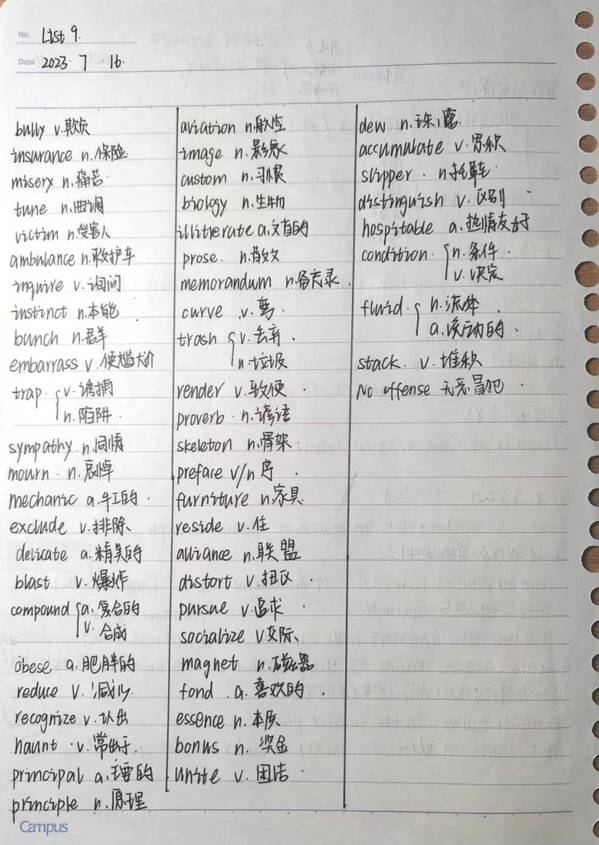 No. List 9.
Date 2023 . 7 . 16.
bully v.欺负
insurance n.保险
misery n.痛苦
tune n.曲调
victim n.受害人
ambulance n.救护车
inquire v.询问
instinct n.本能
bunch n.群
embarrass v.使尴尬
trap v.诱捕
n.陷阱
sympathy n.同情
mourn n.哀悼
mechanic a.手工的
exclude v.排除
delicate a.精美的
blast v.爆炸
compound a.复合的
v.合成
obese a.肥胖的
reduce v.减少
recognize v.认出
haunt v.常出于
principal a.主要的
principle n.原理
aviation n.航空
image n.影像
custom n.习惯
biology n.生物
illiterate a.文盲的
prose n.散文
memorandum n.备忘录
curve v.弯
trash v.丢弃
n.垃圾
render v.致使
proverb n.谚语
skeleton n.骨架
preface v/n 序
furniture n.家具
reside v.住
alliance n.联盟
distort v.扭曲
pursue v.追求
socialize v.交际
magnet n.磁器
fond a.喜欢的
essence n.本质
bonus n.奖金
unite v.团结
dew n.珠,露
accumulate v.累积
slipper n.拖鞋
distinguish v.区别
hospitable a.热情友好
condition n.条件
v.决定
fluid n.流体
a.流动的
stack v.堆积
No offense 无意冒犯
Campus